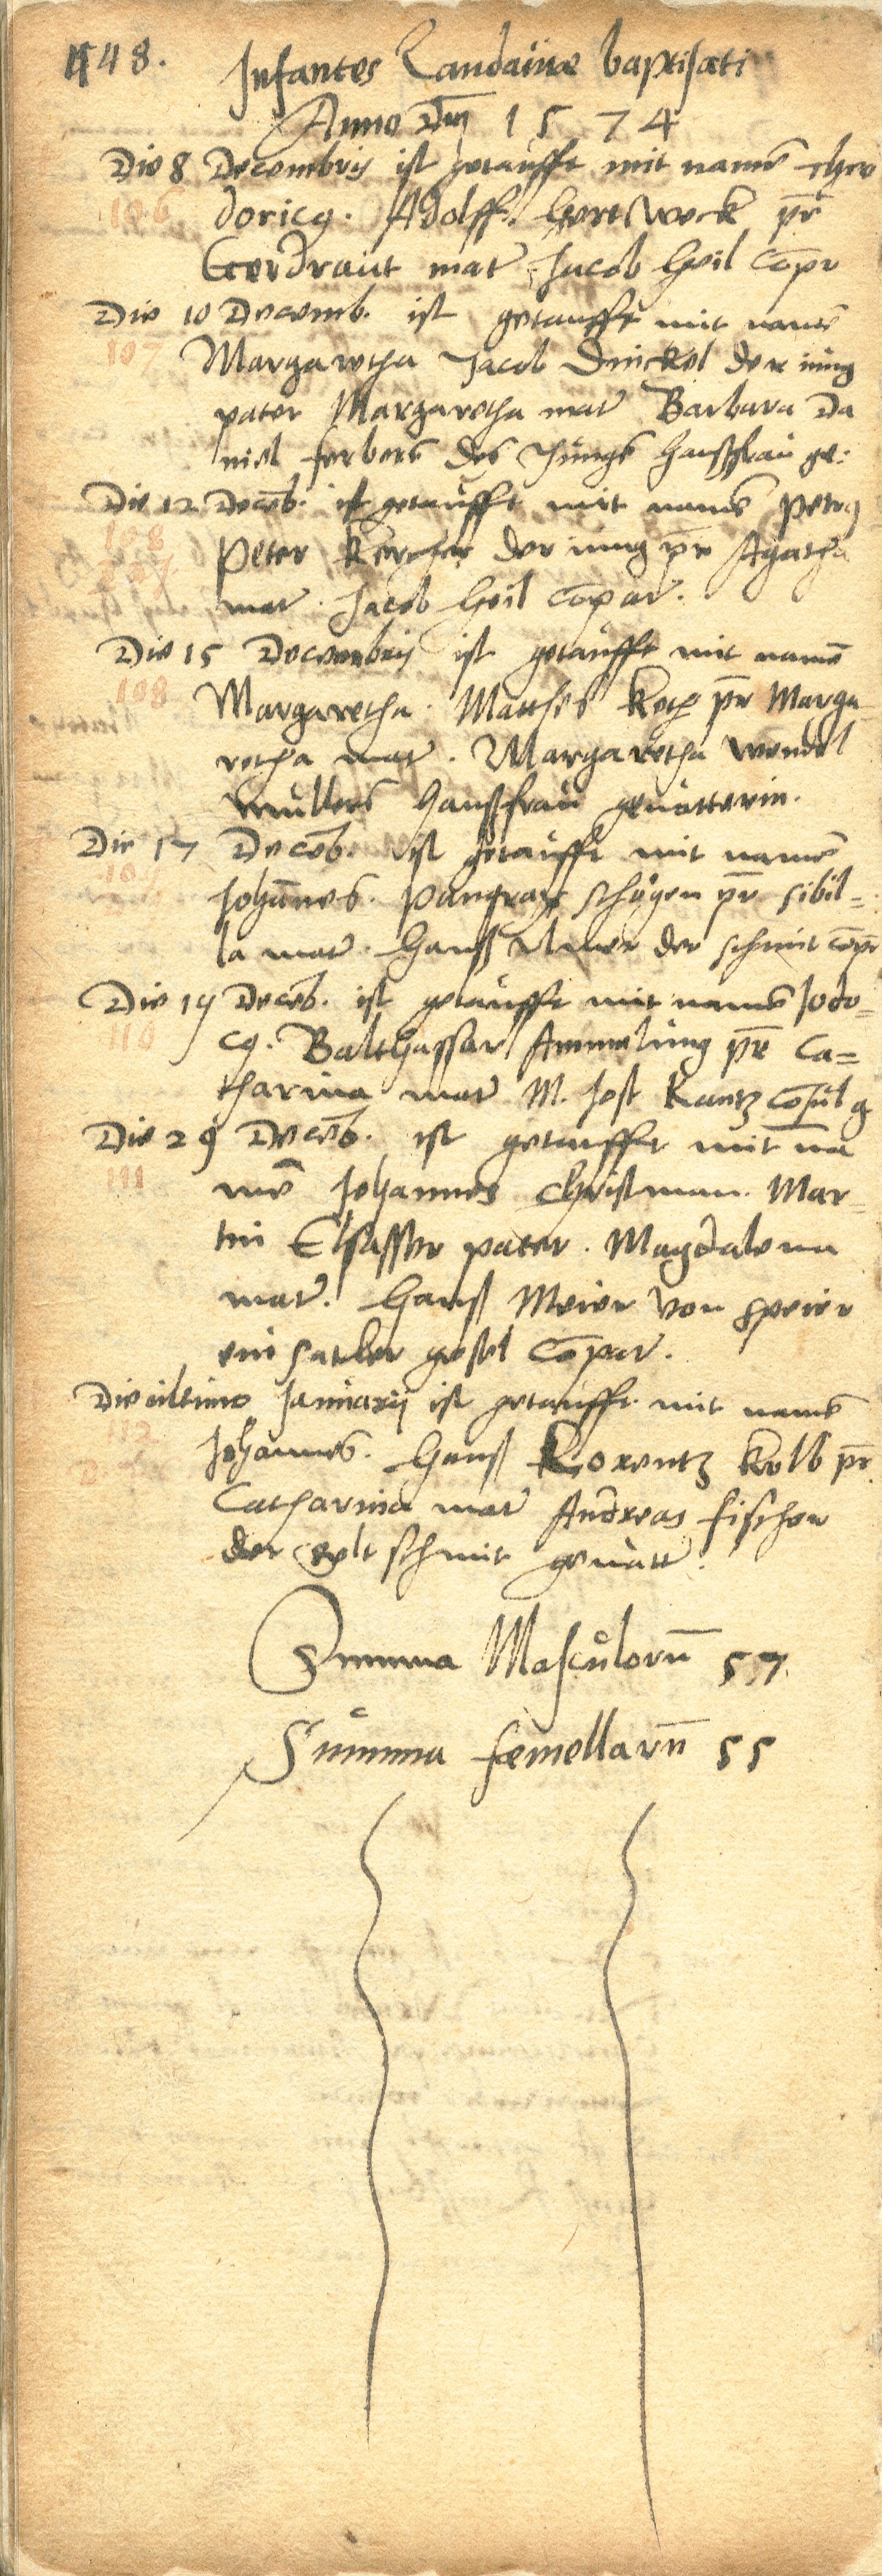 148. Infantes Landaviae baptisati
Anno Dni 1574
Die 8 Decembris ist getaufft mit namē Theo
106 doricq. Adolff Hertzweck pr̄
Gerdraut mater Jacob Heil Compr
Die 10 Decemb. ist getaufft mit namē
107 Margaretha Jacob Dinckel der iung
pater Margaretha mater Barbara Da
niel ferbers des Jungē haußfrau ge:
Die 12 Decēb. ist getaufft mit namē Petrq
108 Peter Kercher der iung pr̄ Agatha
mat. Jacob Heil Compat.
Die 15 Decembris ist getaufft mit namē
108 Margaretha. Matthes Koch pr̄ Marga
retha mater. Margaretha Wendel
müllers haußfrau gevatterin.
Die 17 Decēb. ist getaufft mit namē
109 Johānes. Pangratz schögen pr̄ Sibil=
la mater. Hanß der schmit comp̄r
Die 19 Decēb. ist getaufft mit namē Jodo=
110 cq. Balthassar Ammelung pr̄ Ca=
tharina mater M. Jost Kantz Consul g
Die 29 Decēb. ist getaufft mit na
111 mē Johannes Christman. Mar
tin Elsasser pater. Magdalena
mater. Hanß Meier von Speier
ein satler gesel Compar.
Die ultimo Januarij ist getaufft mit namē
112 Johannes. Hanß Lorentz Kolb pr̄
Catharina mater Andreas fischer
der golt schmit gevatt.
Summa Masculorū 57.
Summa femellarū 55